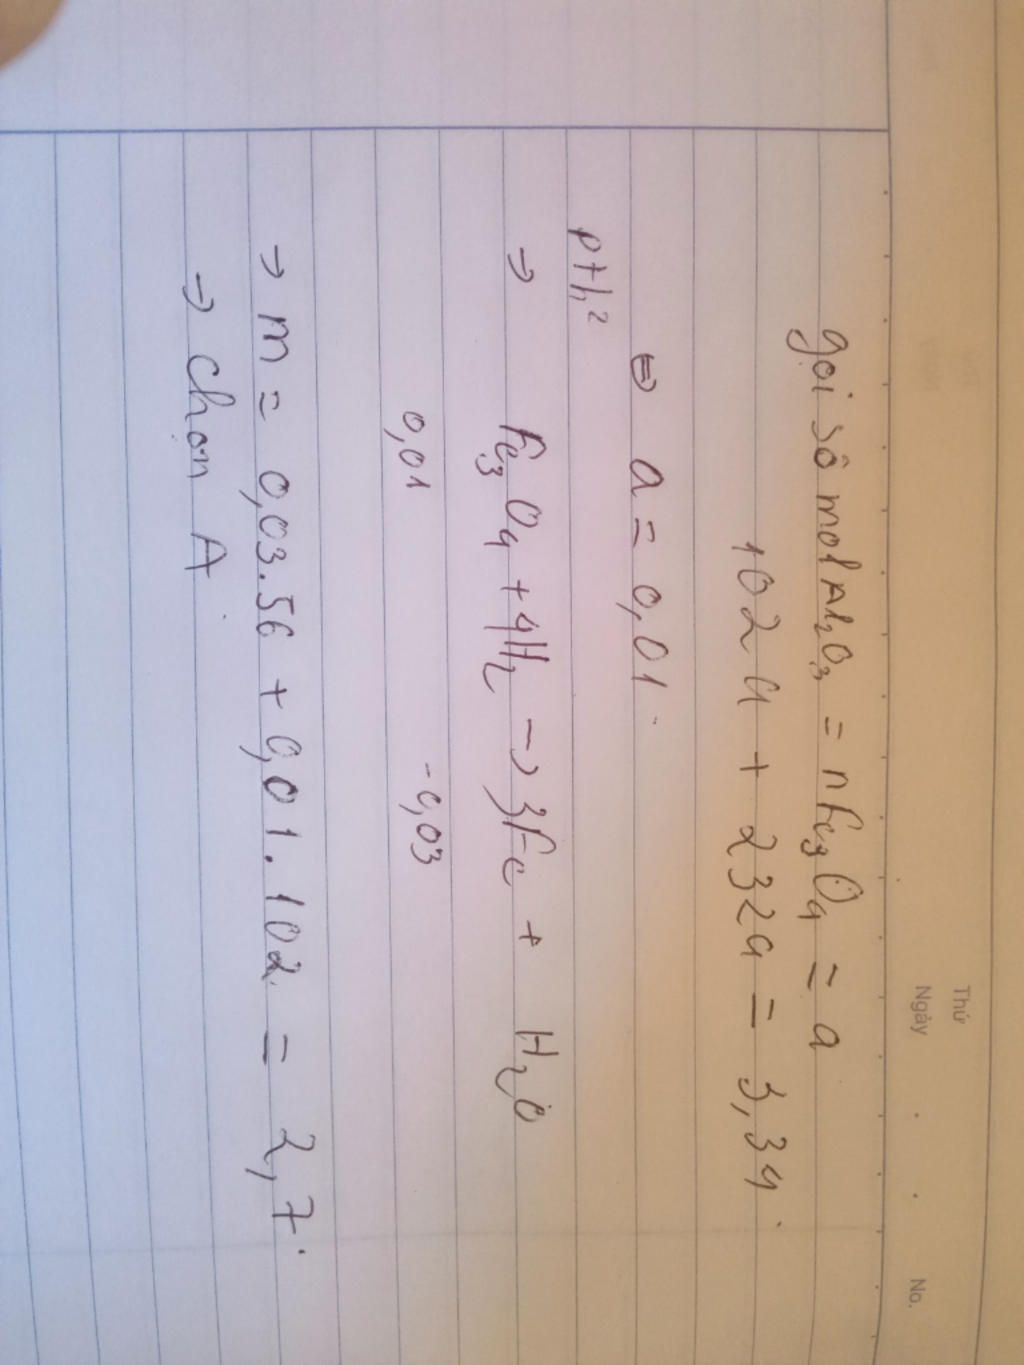 Thứ
Ngày
No.
gọi số mol Al2O3 = nFe3O4 = a
102a + 232a = 3,34
⇔ a = 0,01
pth2
→ Fe3O4 + 4H2 → 3Fe + H2O
0,01 - 0,03
→ m = 0,03.56 + 0,01.102 = 2,7
→ chọn A